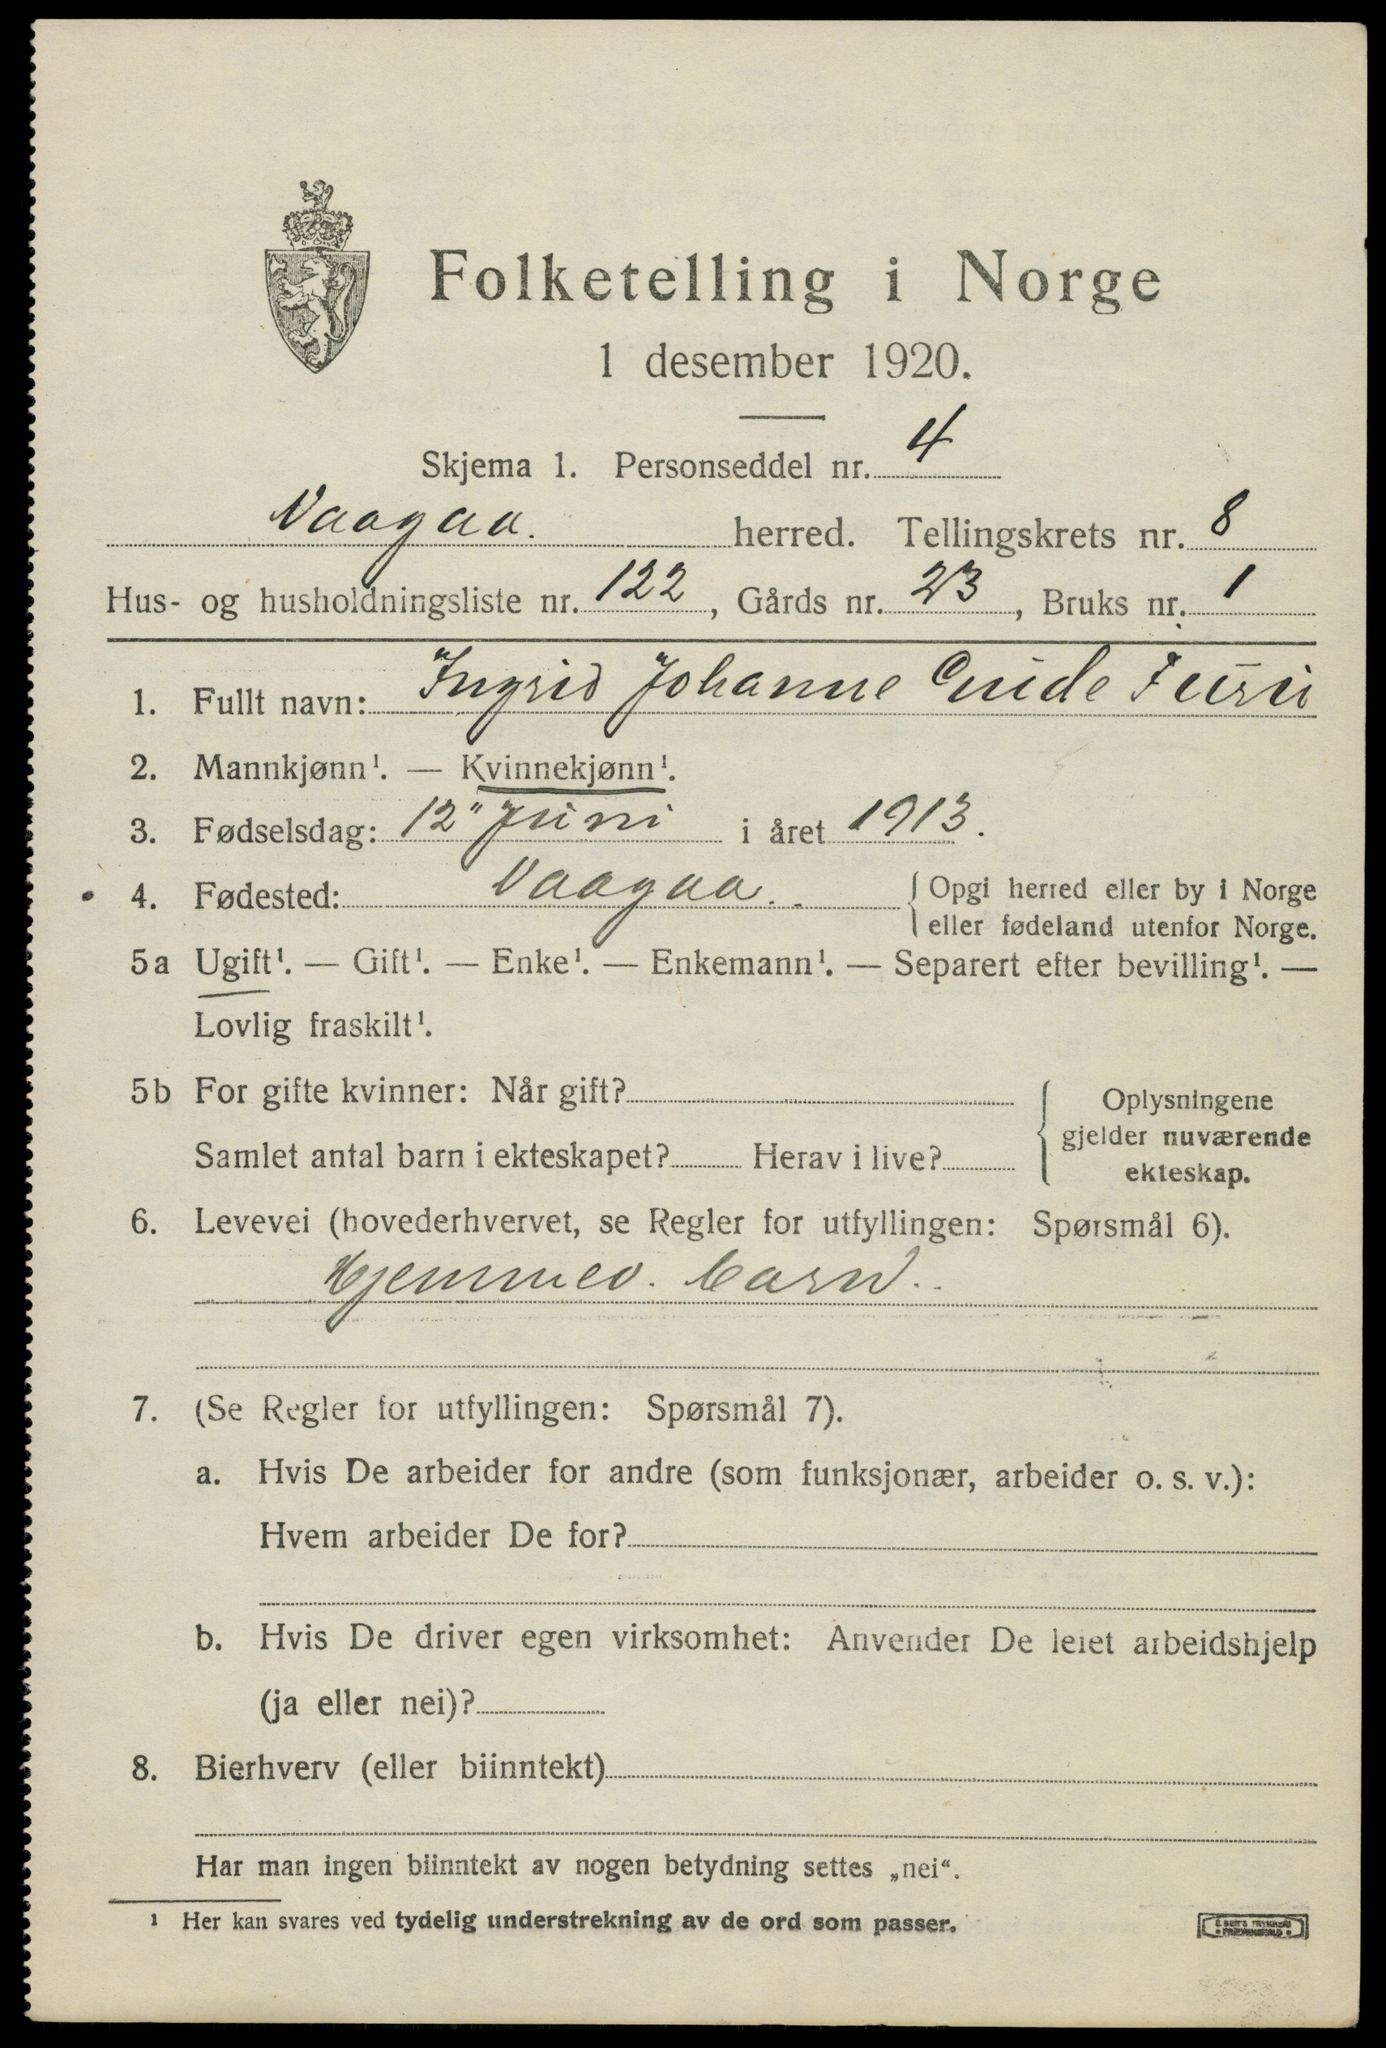 Folketelling i Norge
1 desember 1920.
Skjema 1. Personseddel nr. 4
Vaagaa. herred. Tellingskrets nr. 8
Hus- og husholdningsliste nr. 122, Gårds nr. 23, Bruks nr. 1
1. Fullt navn: Ingrid Johanne Gude Furu
2. Mannkjønn¹. — Kvinnekjønn¹.
3. Fødselsdag: 12" Juni i året 1913.
4. Fødested: Vaagaa. { Opgi herred eller by i Norge
eller fødeland utenfor Norge.
5a Ugift¹. — Gift¹. — Enke¹. — Enkemann¹. — Separert efter bevilling¹. —
Lovlig fraskilt¹.
5b For gifte kvinner: Når gift? { Oplysningene
gjelder nuværende
Samlet antal barn i ekteskapet? Herav i live? ekteskap.
6. Levevei (hovederhvervet, se Regler for utfyllingen: Spørsmål 6).
Hjemmev. barn.
7. (Se Regler for utfyllingen: Spørsmål 7).
a. Hvis De arbeider for andre (som funksjonær, arbeider o. s. v.):
Hvem arbeider De for?
b. Hvis De driver egen virksomhet: Anvender De leiet arbeidshjelp
(ja eller nei)?
8. Bierhverv (eller biinntekt)
Har man ingen biinntekt av nogen betydning settes „nei“.
¹ Her kan svares ved tydelig understrekning av de ord som passer.